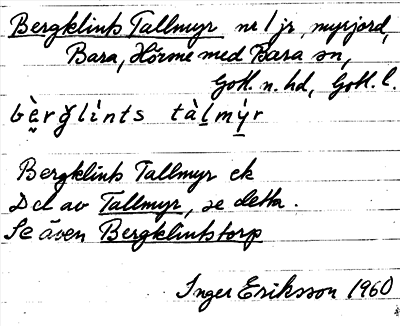 Bergklints Tallmyr nr 1 jr, myrjord,
Bara, Hörsne med Bara sn,
Gotl. n. hd, Gotl. l.
bèrğlìnts tàlmýr
Bergklints Tallmyr ek
Del av Tallmyr, se detta.
Se även Bergklintstorp
Inger Eriksson 1960